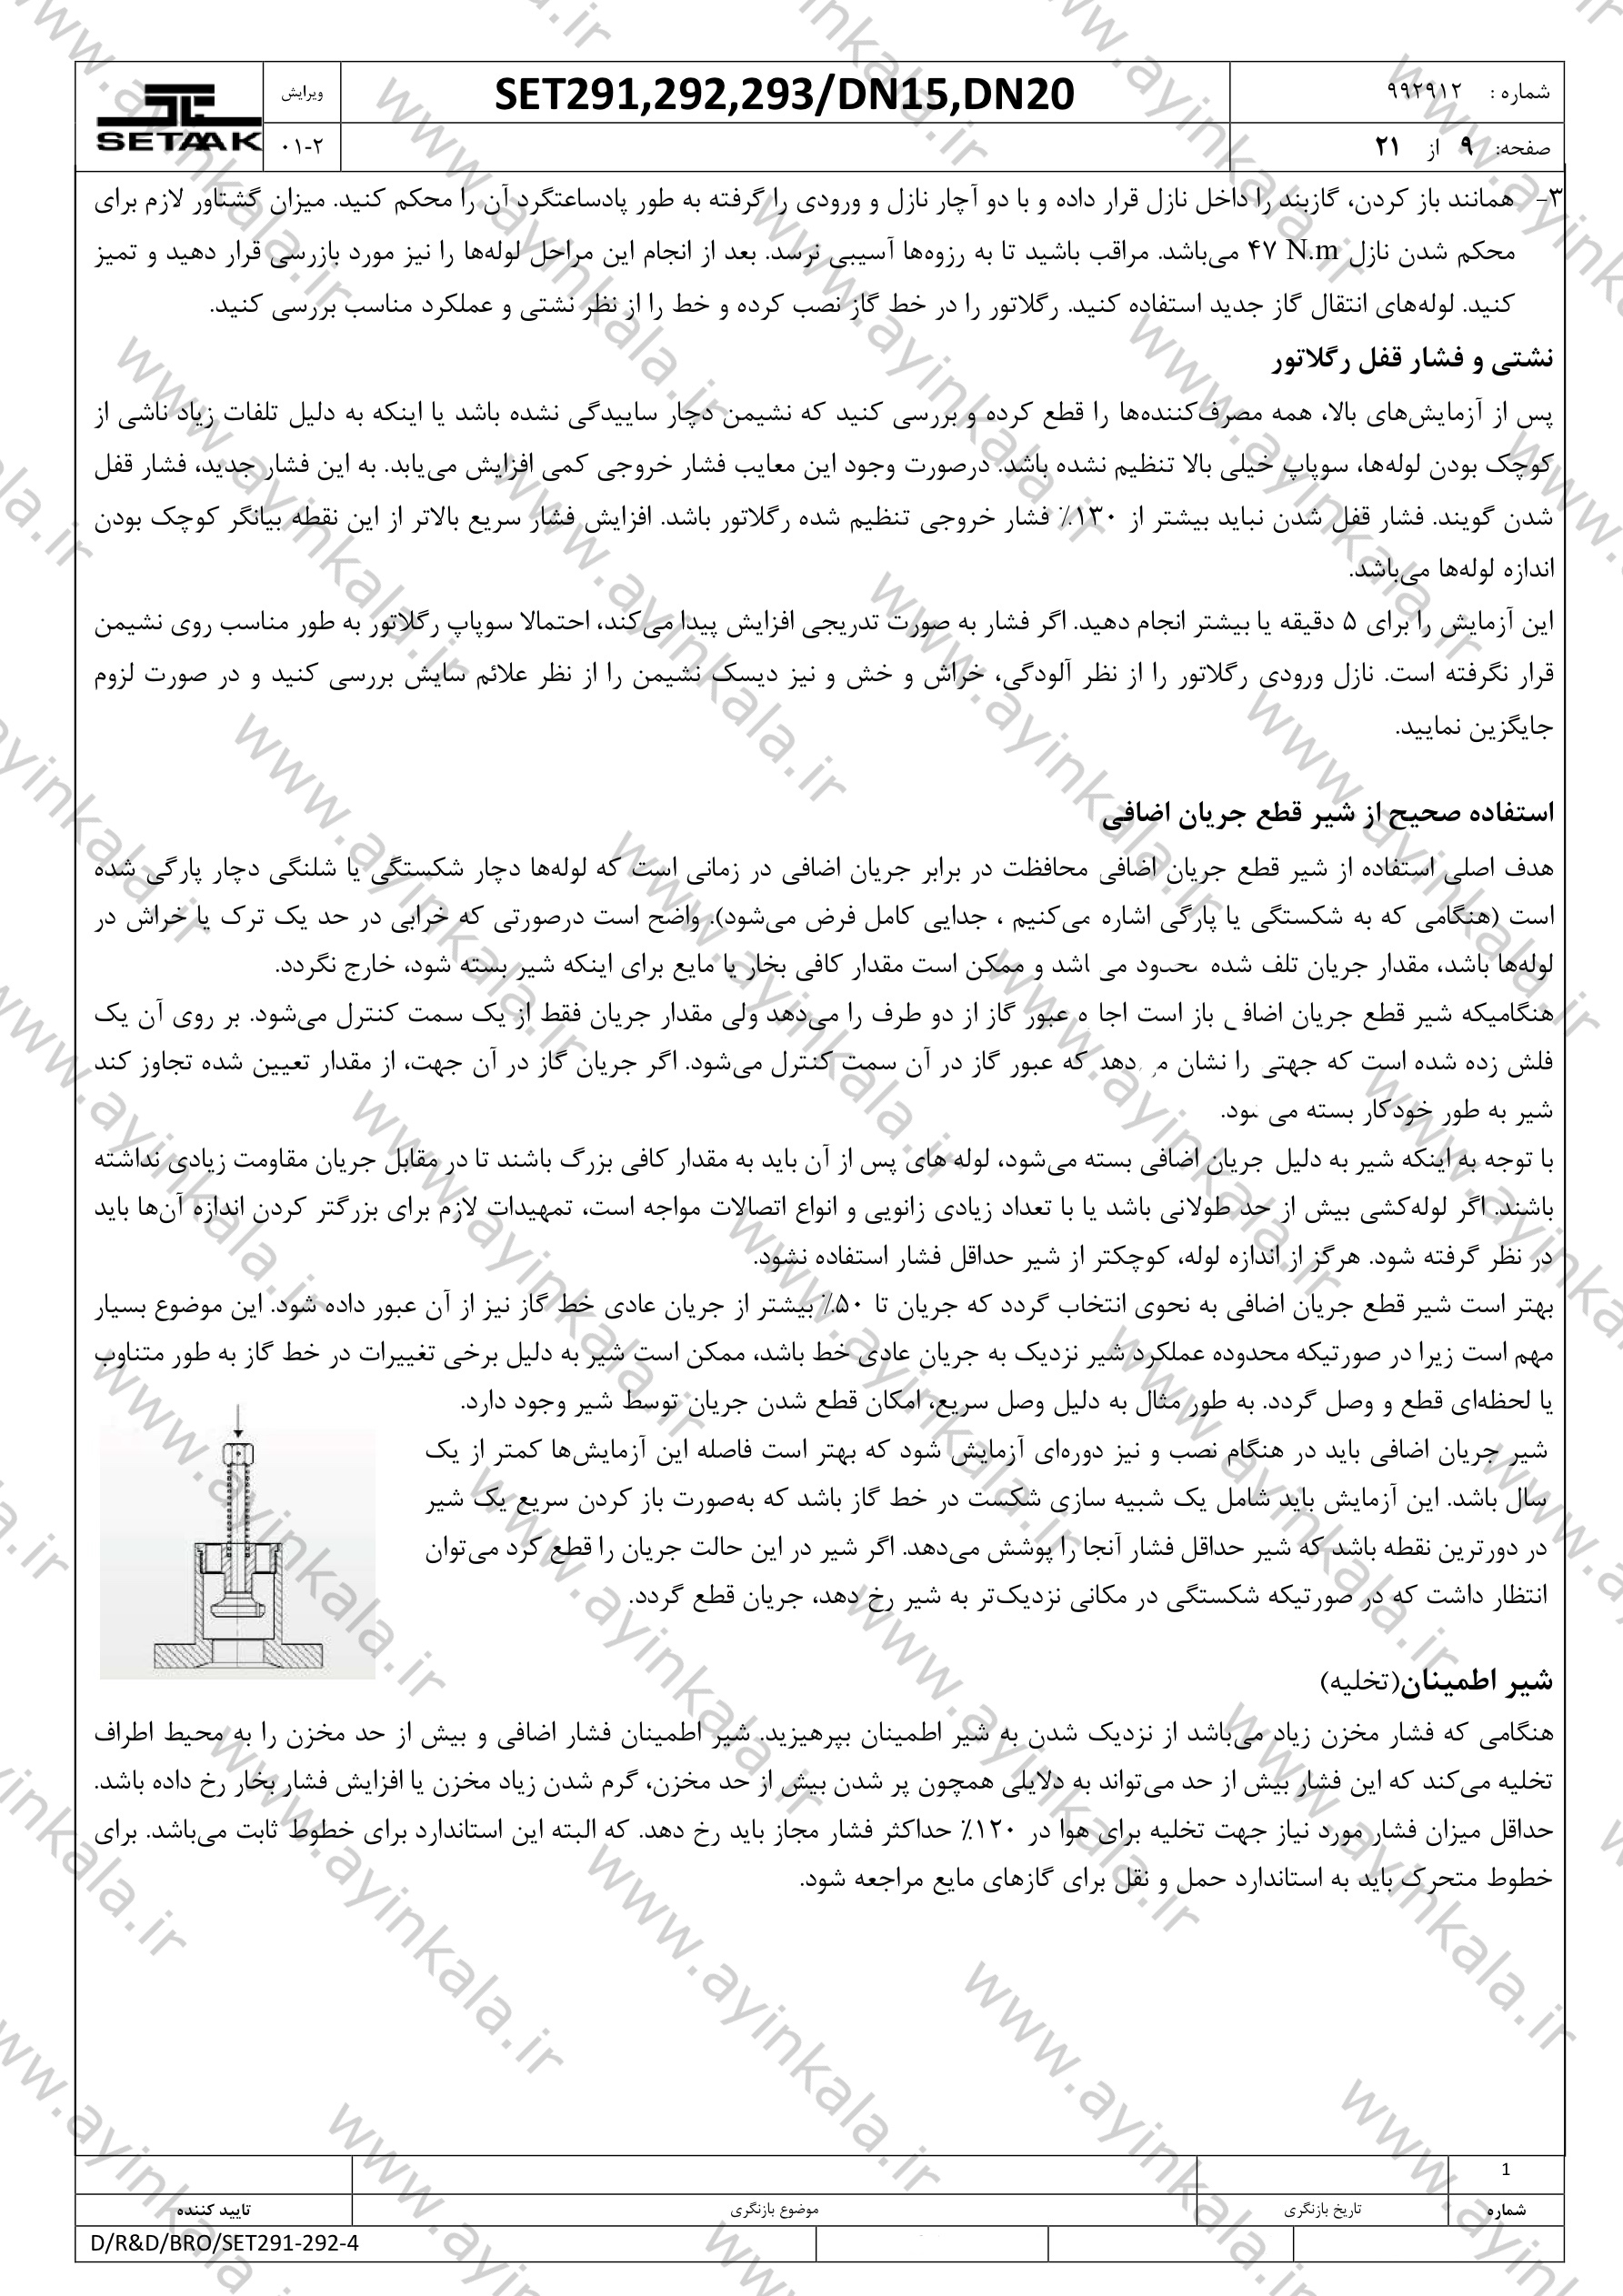 شماره : ۹۹۲۹۱۲
SET291,292,293/DN15,DN20
ویرایش
SETAAK
صفحه: ۹ از ۲۱
۰۱-۲
۳- همانند باز کردن، گازبند را داخل نازل قرار داده و با دو آچار نازل و ورودی را گرفته به طور پادساعتگرد آن را محکم کنید. میزان گشتاور لازم برای
محکم شدن نازل ۴۷ N.m می‌باشد. مراقب باشید تا به رزوه‌ها آسیبی نرسد. بعد از انجام این مراحل لوله‌ها را نیز مورد بازرسی قرار دهید و تمیز
کنید. لوله‌های انتقال گاز جدید استفاده کنید. رگلاتور را در خط گاز نصب کرده و خط را از نظر نشتی و عملکرد مناسب بررسی کنید.
نشتی و فشار قفل رگلاتور
پس از آزمایش‌های بالا، همه مصرف‌کننده‌ها را قطع کرده و بررسی کنید که نشیمن دچار ساییدگی نشده باشد یا اینکه به دلیل تلفات زیاد ناشی از
کوچک بودن لوله‌ها، سوپاپ خیلی بالا تنظیم نشده باشد. درصورت وجود این معایب فشار خروجی کمی افزایش می‌یابد. به این فشار جدید، فشار قفل
شدن گویند. فشار قفل شدن نباید بیشتر از ۱۳۰٪ فشار خروجی تنظیم شده رگلاتور باشد. افزایش فشار سریع بالاتر از این نقطه بیانگر کوچک بودن
اندازه لوله‌ها می‌باشد.
این آزمایش را برای ۵ دقیقه یا بیشتر انجام دهید. اگر فشار به صورت تدریجی افزایش پیدا می‌کند، احتمالا سوپاپ رگلاتور به طور مناسب روی نشیمن
قرار نگرفته است. نازل ورودی رگلاتور را از نظر آلودگی، خراش و خش و نیز دیسک نشیمن را از نظر علائم سایش بررسی کنید و در صورت لزوم
جایگزین نمایید.
استفاده صحیح از شیر قطع جریان اضافی
هدف اصلی استفاده از شیر قطع جریان اضافی محافظت در برابر جریان اضافی در زمانی است که لوله‌ها دچار شکستگی یا شلنگی دچار پارگی شده
است (هنگامی که به شکستگی یا پارگی اشاره می‌کنیم ، جدایی کامل فرض می‌شود). واضح است درصورتی که خرابی در حد یک ترک یا خراش در
لوله‌ها باشد، مقدار جریان تلف شده محدود می باشد و ممکن است مقدار کافی بخار یا مایع برای اینکه شیر بسته شود، خارج نگردد.
هنگامیکه شیر قطع جریان اضافی باز است اجازه عبور گاز از دو طرف را می‌دهد ولی مقدار جریان فقط از یک سمت کنترل می‌شود. بر روی آن یک
فلش زده شده است که جهتی را نشان می دهد که عبور گاز در آن سمت کنترل می‌شود. اگر جریان گاز در آن جهت، از مقدار تعیین شده تجاوز کند
شیر به طور خودکار بسته می شود.
با توجه به اینکه شیر به دلیل جریان اضافی بسته می‌شود، لوله های پس از آن باید به مقدار کافی بزرگ باشند تا در مقابل جریان مقاومت زیادی نداشته
باشند. اگر لوله‌کشی بیش از حد طولانی باشد یا با تعداد زیادی زانویی و انواع اتصالات مواجه است، تمهیدات لازم برای بزرگتر کردن اندازه آن‌ها باید
در نظر گرفته شود. هرگز از اندازه لوله، کوچکتر از شیر حداقل فشار استفاده نشود.
بهتر است شیر قطع جریان اضافی به نحوی انتخاب گردد که جریان تا ۵۰٪ بیشتر از جریان عادی خط گاز نیز از آن عبور داده شود. این موضوع بسیار
مهم است زیرا در صورتیکه محدوده عملکرد شیر نزدیک به جریان عادی خط باشد، ممکن است شیر به دلیل برخی تغییرات در خط گاز به طور متناوب
یا لحظه‌ای قطع و وصل گردد. به طور مثال به دلیل وصل سریع، امکان قطع شدن جریان توسط شیر وجود دارد.
شیر جریان اضافی باید در هنگام نصب و نیز دوره‌ای آزمایش شود که بهتر است فاصله این آزمایش‌ها کمتر از یک
سال باشد. این آزمایش باید شامل یک شبیه سازی شکست در خط گاز باشد که به‌صورت باز کردن سریع یک شیر
در دورترین نقطه باشد که شیر حداقل فشار آنجا را پوشش می‌دهد. اگر شیر در این حالت جریان را قطع کرد می‌توان
انتظار داشت که در صورتیکه شکستگی در مکانی نزدیک‌تر به شیر رخ دهد، جریان قطع گردد.
شیر اطمینان(تخلیه)
هنگامی که فشار مخزن زیاد می‌باشد از نزدیک شدن به شیر اطمینان بپرهیزید. شیر اطمینان فشار اضافی و بیش از حد مخزن را به محیط اطراف
تخلیه می‌کند که این فشار بیش از حد می‌تواند به دلایلی همچون پر شدن بیش از حد مخزن، گرم شدن زیاد مخزن یا افزایش فشار بخار رخ داده باشد.
حداقل میزان فشار مورد نیاز جهت تخلیه برای هوا در ۱۲۰٪ حداکثر فشار مجاز باید رخ دهد. که البته این استاندارد برای خطوط ثابت می‌باشد. برای
خطوط متحرک باید به استاندارد حمل و نقل برای گازهای مایع مراجعه شود.
1
شماره
تاریخ بازنگری
موضوع بازنگری
تایید کننده
D/R&D/BRO/SET291-292-4
www.ayinkala.ir